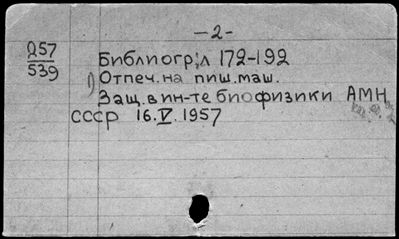 —2—
257
539
Библиогр: л 172-192
Отпеч. на пиш. маш.
Защ. в ин-те биофизики АМН
СССР 16.V.1957